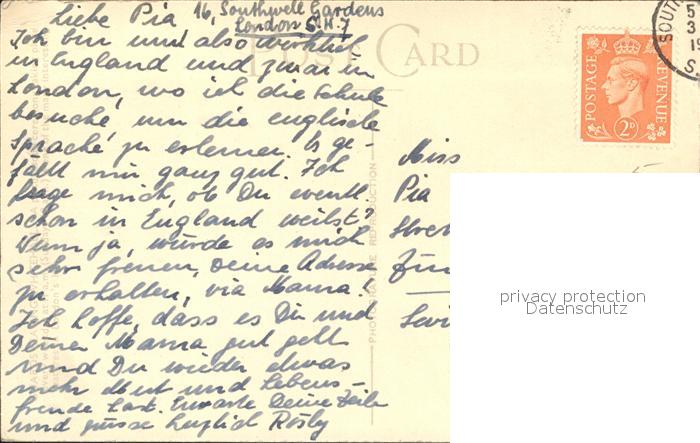 16, Southwell Gardens
London S.W.7
Liebe Pia
Ich bin nun also wirklich
in England und zwar in
London, wo ich die Schule
besuche um die englische
Sprache zu erlernen. Es ge-
fällt mir ganz gut. Ich
frage mich, ob Du eventl.
schon in England weilst?
Wenn ja, würde es mich
sehr freuen, Deine Adresse
zu erhalten, via Mama!
Ich hoffe, dass es Dir und
Deiner Mama gut geht
und Du wieder etwas
mehr Mut und Lebens-
freude hast. Erwarte Deine Zeile
und grüsse herzlich Rösly
POST CARD
PHOTOGRAVURE REPRODUCTION
POSTAGE REVENUE
2D
SOUTH
Miss
Pia
privacy protection
Datenschutz